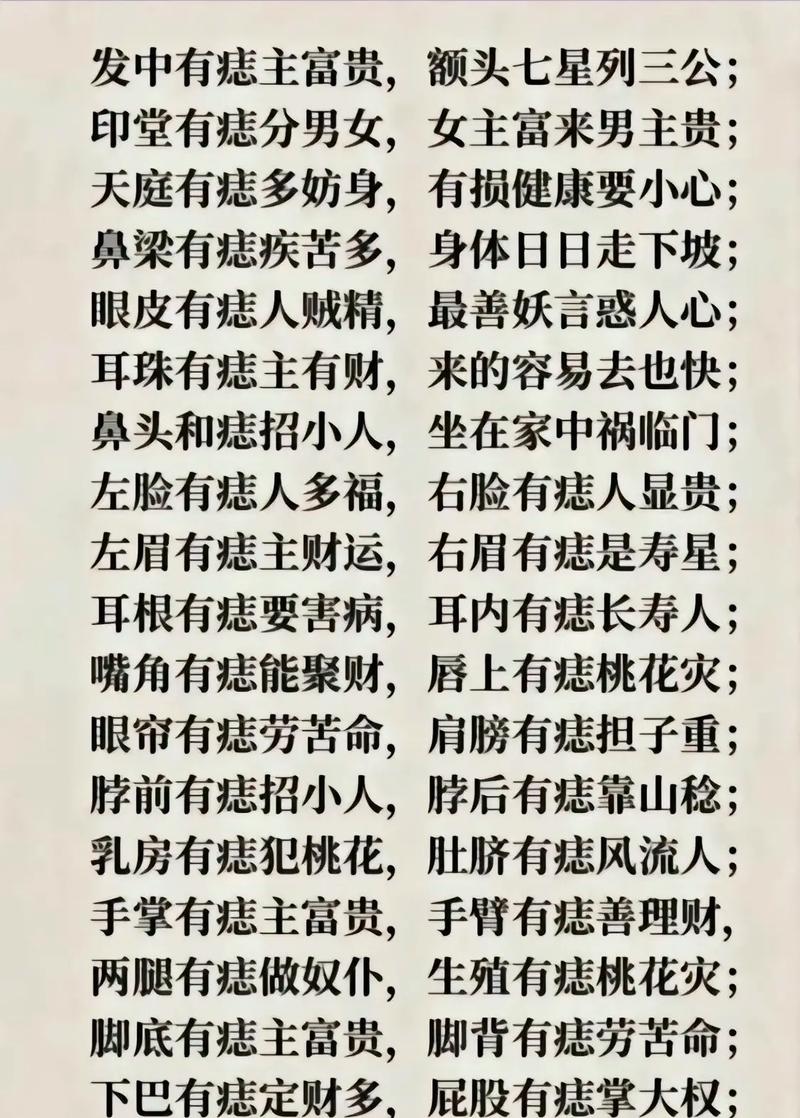 发中有痣主富贵，额头七星列三公；
印堂有痣分男女，女主富来男主贵；
天庭有痣多妨身，有损健康要小心；
鼻梁有痣疾苦多，身体日日走下坡；
眼皮有痣人贼精，最善妖言惑人心；
耳珠有痣主有财，来的容易去也快；
鼻头和痣招小人，坐在家中祸临门；
左脸有痣人多福，右脸有痣人显贵；
左眉有痣主财运，右眉有痣是寿星；
耳根有痣要害病，耳内有痣长寿人；
嘴角有痣能聚财，唇上有痣桃花灾；
眼帘有痣劳苦命，肩膀有痣担子重；
脖前有痣招小人，脖后有痣靠山稔；
乳房有痣犯桃花，肚脐有痣风流人；
手掌有痣主富贵，手臂有痣善理财，
两腿有痣做奴仆，生殖有痣桃花灾；
脚底有痣主富贵，脚背有痣劳苦命；
下巴有痣定财多，屁股有痣掌大权；